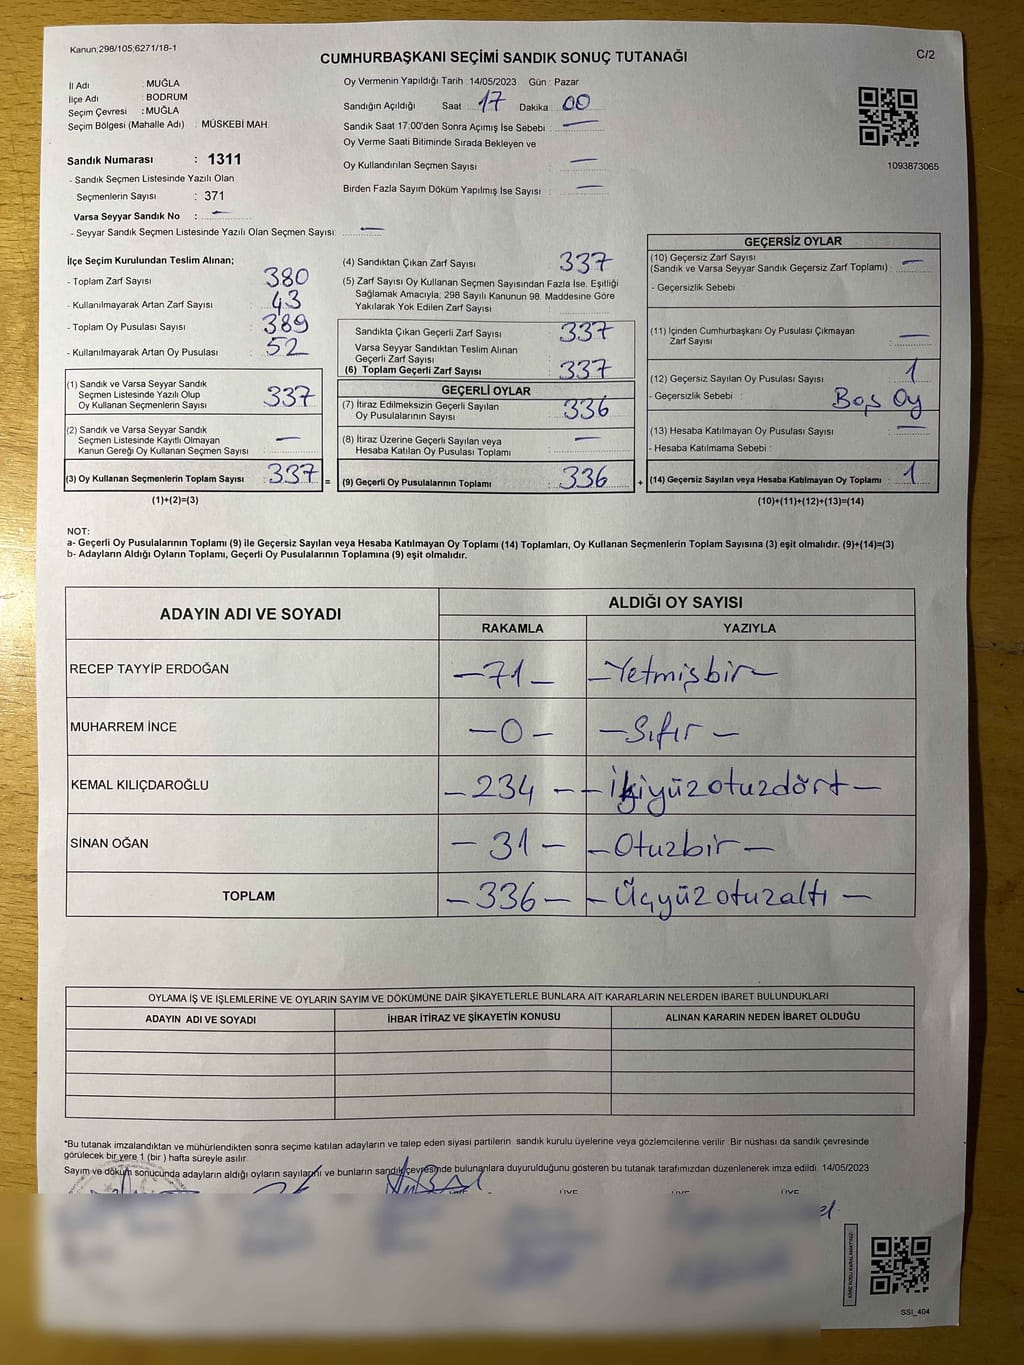 Kanun;298/105;6271/18-1
CUMHURBAŞKANI SEÇİMİ SANDIK SONUÇ TUTANAĞI
C/2
İl Adı : MUĞLA
İlçe Adı : BODRUM
Seçim Çevresi : MUĞLA
Seçim Bölgesi (Mahalle Adı) : MÜSKEBİ MAH.
Sandık Numarası : 1311
- Sandık Seçmen Listesinde Yazılı Olan
Seçmenlerin Sayısı : 371
Varsa Seyyar Sandık No : —
- Seyyar Sandık Seçmen Listesinde Yazılı Olan Seçmen Sayısı: —
Oy Vermenin Yapıldığı Tarih : 14/05/2023 Gün : Pazar
Sandığın Açıldığı Saat : 17 Dakika : 00
Sandık Saat 17:00'den Sonra Açımış İse Sebebi : —
Oy Verme Saati Bitiminde Sırada Bekleyen ve
Oy Kullandırılan Seçmen Sayısı —
Birden Fazla Sayım Döküm Yapılmış İse Sayısı : —
1093873065
İlçe Seçim Kurulundan Teslim Alınan;
- Toplam Zarf Sayısı : 380
- Kullanılmayarak Artan Zarf Sayısı : 43
- Toplam Oy Pusulası Sayısı : 389
- Kullanılmayarak Artan Oy Pusulası : 52
(1) Sandık ve Varsa Seyyar Sandık
Seçmen Listesinde Yazılı Olup
Oy Kullanan Seçmenlerin Sayısı : 337
(2) Sandık ve Varsa Seyyar Sandık
Seçmen Listesinde Kayıtlı Olmayan
Kanun Gereği Oy Kullanan Seçmen Sayısı : —
(3) Oy Kullanan Seçmenlerin Toplam Sayısı : 337 =
(1)+(2)=(3)
(4) Sandıktan Çıkan Zarf Sayısı : 337
(5) Zarf Sayısı Oy Kullanan Seçmen Sayısından Fazla İse, Eşitliği
Sağlamak Amacıyla; 298 Sayılı Kanunun 98. Maddesine Göre
Yakılarak Yok Edilen Zarf Sayısı :
Sandıkta Çıkan Geçerli Zarf Sayısı : 337
Varsa Seyyar Sandıktan Teslim Alınan
Geçerli Zarf Sayısı :
(6) Toplam Geçerli Zarf Sayısı : 337
GEÇERLİ OYLAR
(7) İtiraz Edilmeksizin Geçerli Sayılan
Oy Pusulalarının Sayısı : 336
(8) İtiraz Üzerine Geçerli Sayılan veya
Hesaba Katılan Oy Pusulası Toplamı : —
(9) Geçerli Oy Pusulalarının Toplamı : 336 +
GEÇERSİZ OYLAR
(10) Geçersiz Zarf Sayısı
(Sandık ve Varsa Seyyar Sandık Geçersiz Zarf Toplamı) : —
- Geçersizlik Sebebi :
(11) İçinden Cumhurbaşkanı Oy Pusulası Çıkmayan
Zarf Sayısı : —
(12) Geçersiz Sayılan Oy Pusulası Sayısı : 1
- Geçersizlik Sebebi : Boş Oy
(13) Hesaba Katılmayan Oy Pusulası Sayısı : —
- Hesaba Katılmama Sebebi :
(14) Geçersiz Sayılan veya Hesaba Katılmayan Oy Toplamı : 1
(10)+(11)+(12)+(13)=(14)
NOT:
a- Geçerli Oy Pusulalarının Toplamı (9) ile Geçersiz Sayılan veya Hesaba Katılmayan Oy Toplamı (14) Toplamları, Oy Kullanan Seçmenlerin Toplam Sayısına (3) eşit olmalıdır. (9)+(14)=(3)
b- Adayların Aldığı Oyların Toplamı, Geçerli Oy Pusulalarının Toplamına (9) eşit olmalıdır.
ADAYIN ADI VE SOYADI
ALDIĞI OY SAYISI
RAKAMLA YAZIYLA
RECEP TAYYİP ERDOĞAN — 71 — — Yetmişbir —
MUHARREM İNCE — 0 — — Sıfır —
KEMAL KILIÇDAROĞLU — 234 — — İkiyüzotuzdört —
SİNAN OĞAN — 31 — — Otuzbir —
TOPLAM — 336 — — Üçyüzotuzaltı —
OYLAMA İŞ VE İŞLEMLERİNE VE OYLARIN SAYIM VE DÖKÜMÜNE DAİR ŞİKAYETLERLE BUNLARA AİT KARARLARIN NELERDEN İBARET BULUNDUKLARI
ADAYIN ADI VE SOYADI İHBAR İTİRAZ VE ŞİKAYETİN KONUSU ALINAN KARARIN NEDEN İBARET OLDUĞU
*Bu tutanak imzalandıktan ve mühürlendikten sonra seçime katılan adayların ve talep eden siyasi partilerin sandık kurulu üyelerine veya gözlemcilerine verilir. Bir nüshası da sandık çevresinde
görülecek bir yere 1 (bir ) hafta süreyle asılır.
Sayım ve döküm sonucunda adayların aldığı oyların sayılarını ve bunların sandık çevresinde bulunanlara duyurulduğunu gösteren bu tutanak tarafımızdan düzenlenerek imza edildi. 14/05/2023
ÜYE ÜYE ÜYE
SSI_404